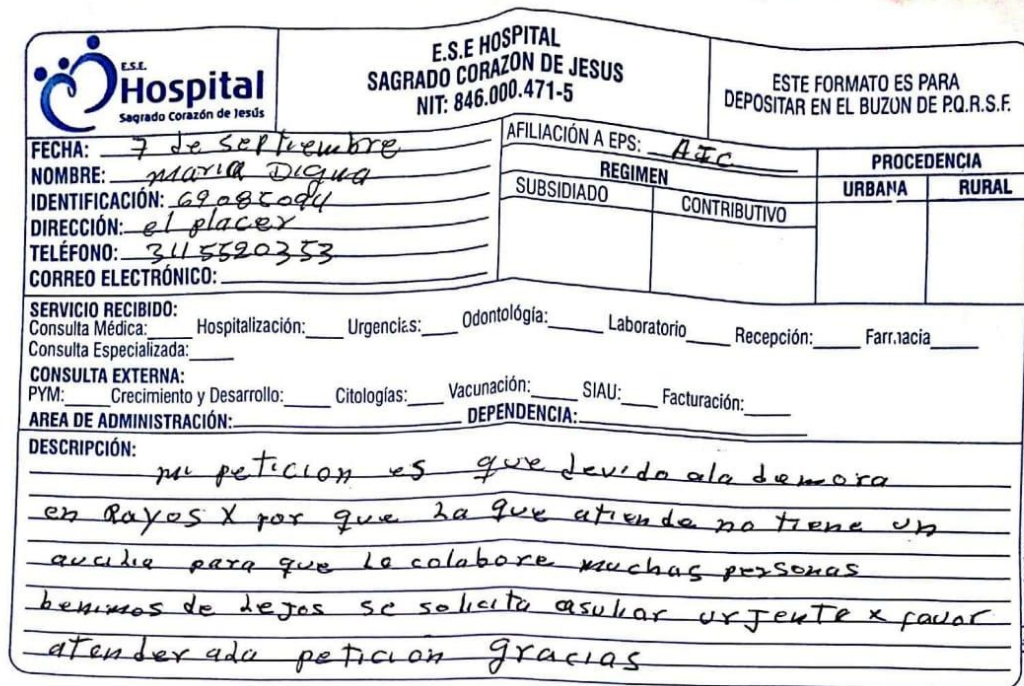 E.S.E.
Hospital
Sagrado Corazón de Jesús
E.S.E HOSPITAL
SAGRADO CORAZON DE JESUS
NIT: 846.000.471-5
ESTE FORMATO ES PARA
DEPOSITAR EN EL BUZON DE P.Q.R.S.F.
FECHA: 7 de septiembre
NOMBRE: maria Digua
IDENTIFICACIÓN:
DIRECCIÓN: el placer
TELÉFONO: 3115520353
CORREO ELECTRÓNICO:
AFILIACIÓN A EPS: AIC
REGIMEN
SUBSIDIADO CONTRIBUTIVO
PROCEDENCIA
URBANA RURAL
SERVICIO RECIBIDO:
Consulta Médica: Hospitalización: Urgencias: Odontológía: Laboratorio Recepción: Farmacia
Consulta Especializada:
CONSULTA EXTERNA:
PYM: Crecimiento y Desarrollo: Citologías: Vacunación: SIAU: Facturación:
AREA DE ADMINISTRACIÓN: DEPENDENCIA:
DESCRIPCIÓN:
mi peticion es que devido ala demora
en Rayos X por que la que atiende no tiene un
para que le colabore muchas personas
benimos de lejos se solicita urjente x favor
atender ada peticion gracias